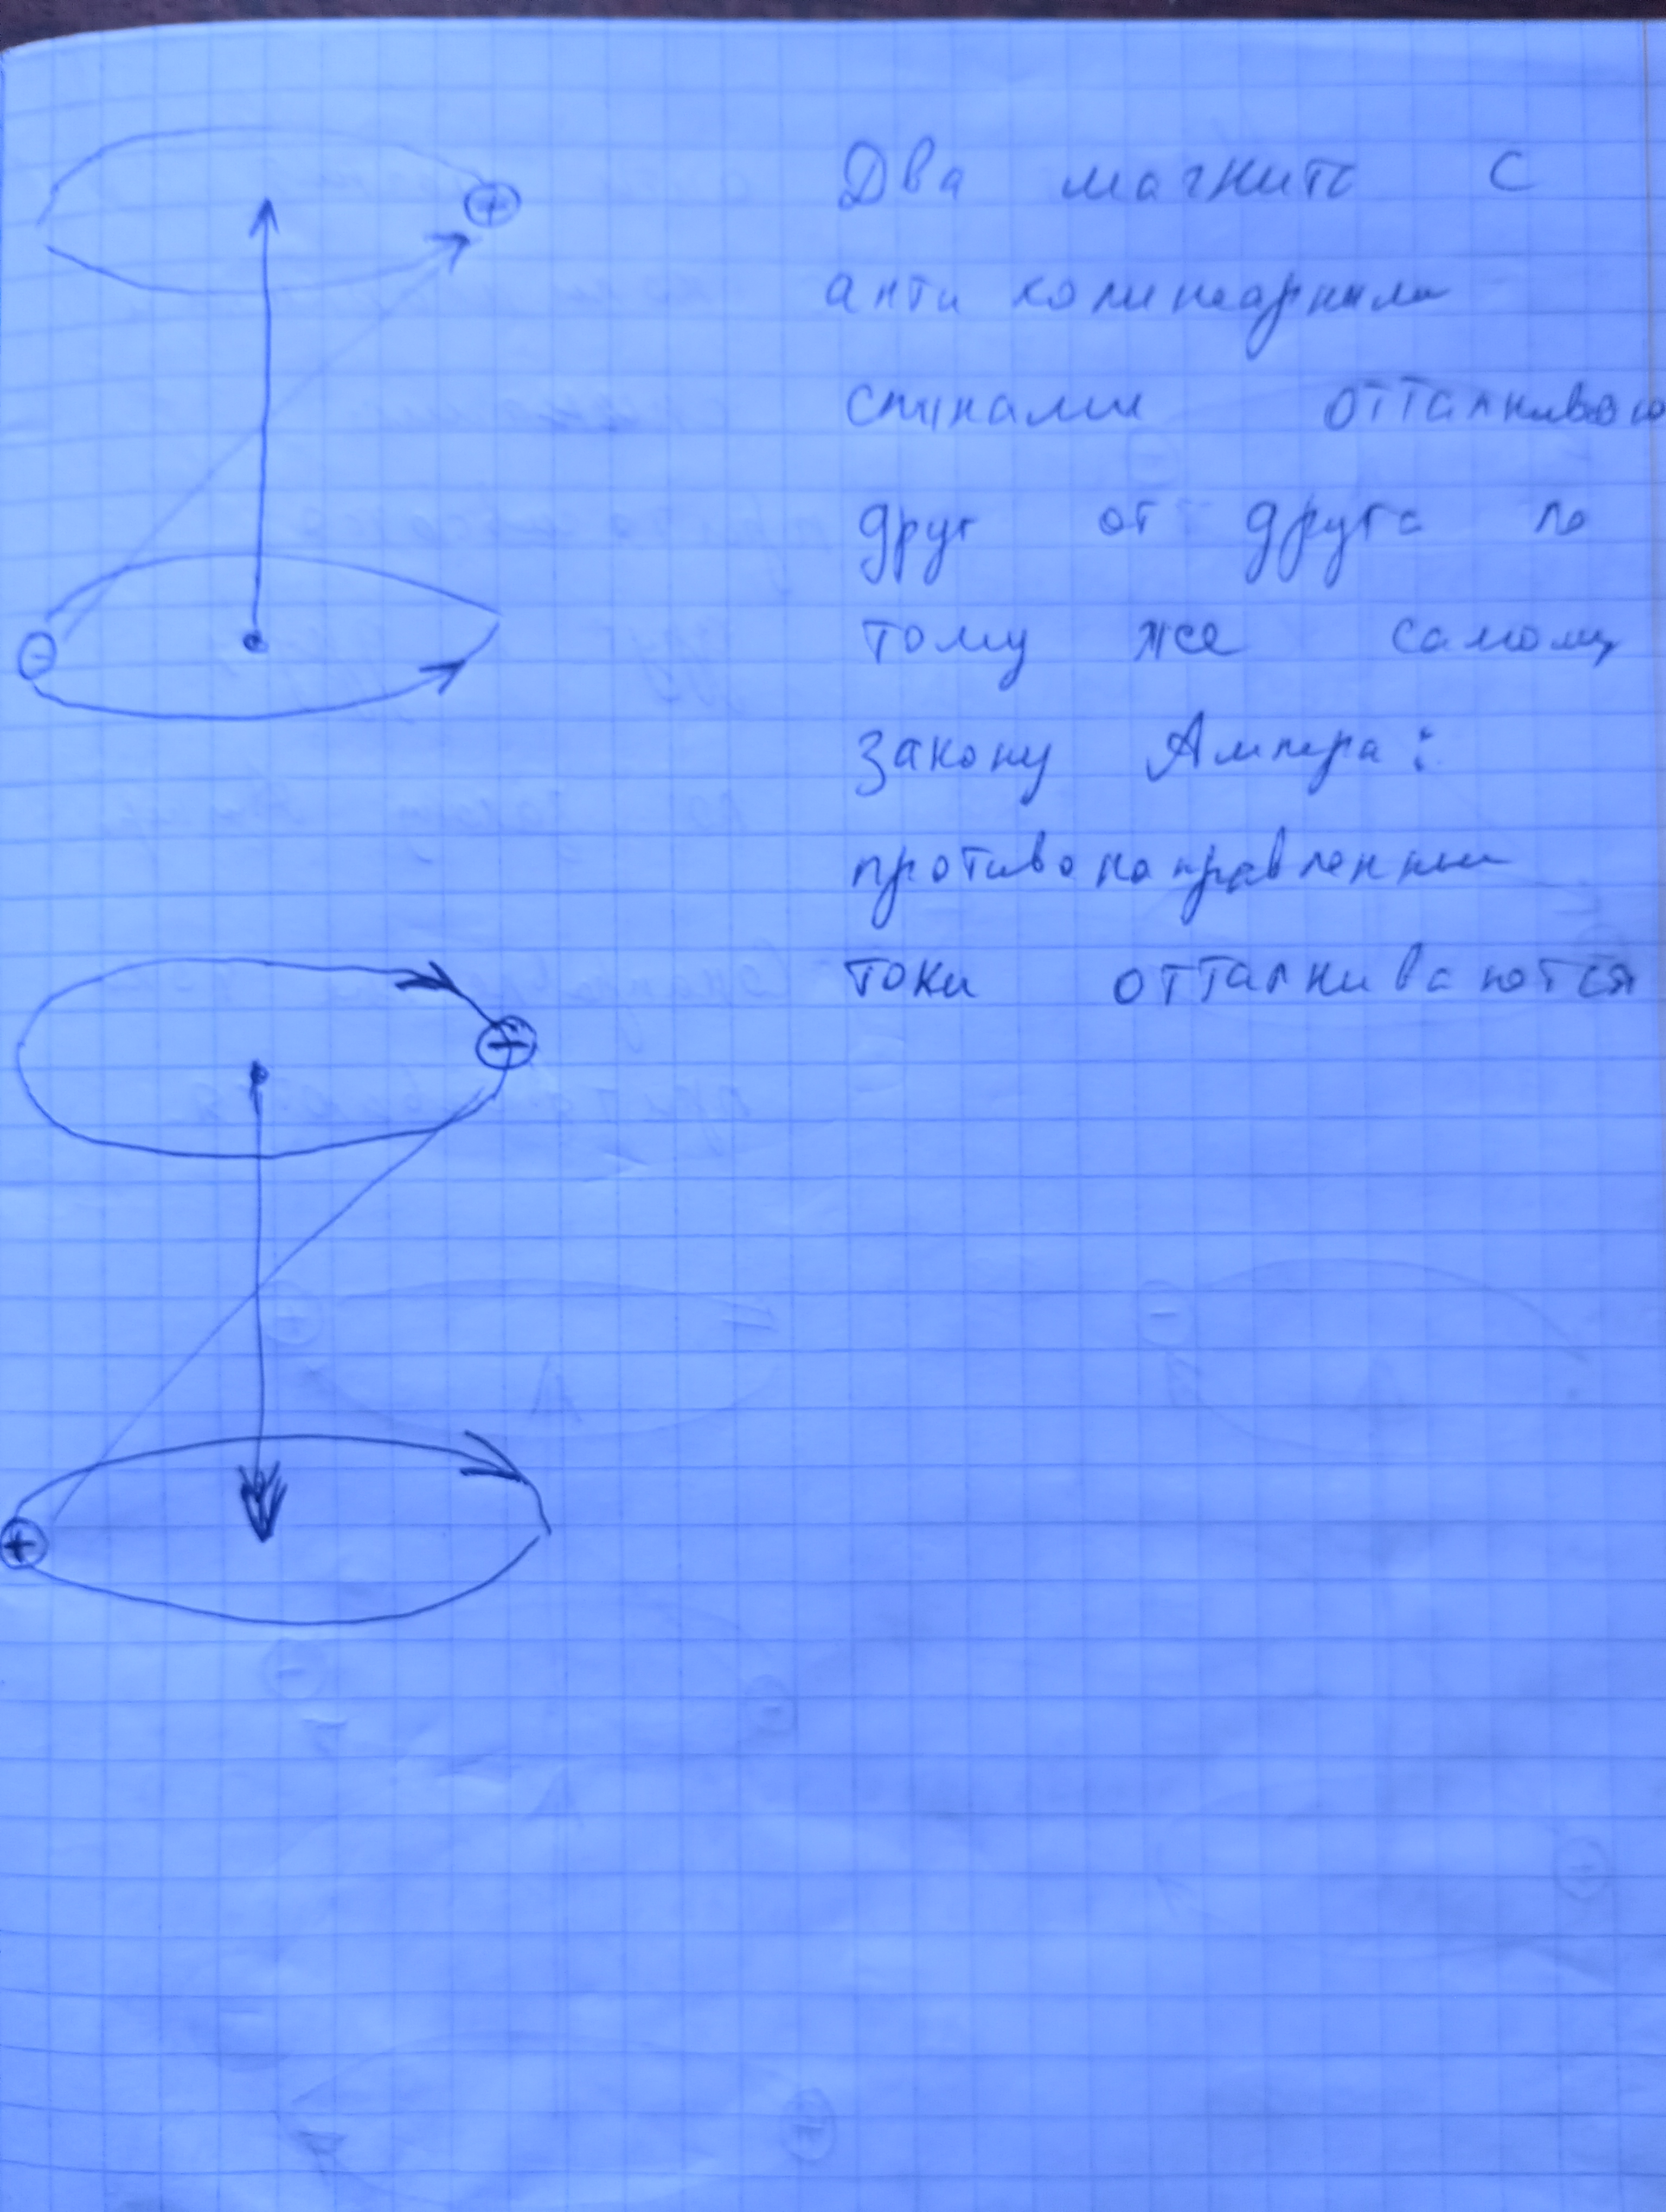 Два магнита с
анти колинеарными
спинами отталкиваю
друг от друга по
тому же самому
закону Ампера:
противонаправленные
токи отталкиваются
+
-
-
+